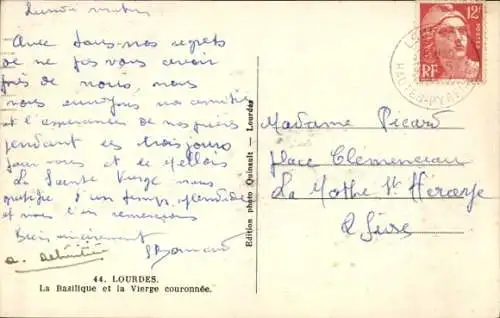 Lundi matin
Avec tous nos regrets
de ne pas vous avoir
près de nous, nous
nous envoyons nos amitiés
et l'assurance de nos prières
pendant ces trois jours
pour vous et le Mellois
La Sainte Vierge nous
gratifie d'un temps splendide
et nous l'en remercions
Bien sincèrement
44. LOURDES.
La Basilique et la Vierge couronnée.
Edition photo Quinault — Lourdes
12F
RF
HAUTES-PYRÉN
Madame Picard
place Clemenceau
La Mothe St Héraye
2 Sèvres